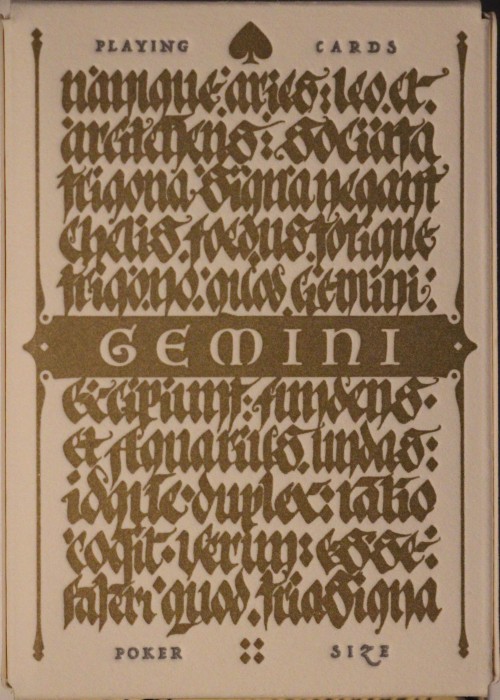 PLAYING CARDS
namque·aries:leo.et.
arcitenens: sociata
trigona·Signa negant
chelis.foedus totique
trigono:quod.Gemini:
GEMINI
Excipiunt:fundens·
et Aquarius.undas:
idque·duplex:ratio
cogit·verum:esse·
fateri quod.tria Signa
POKER SIZE